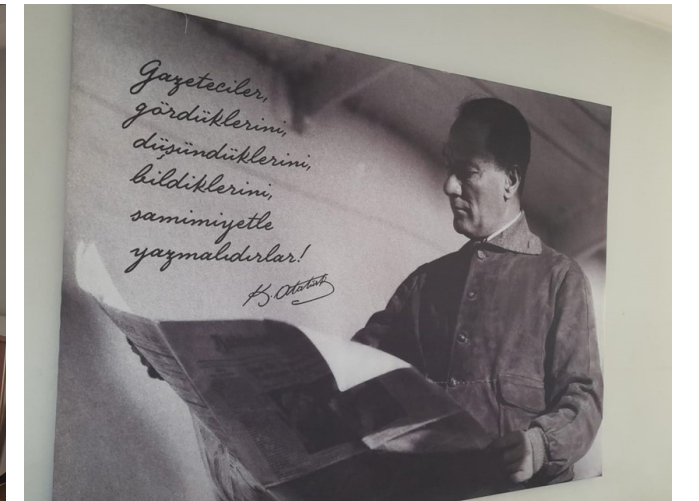 Gazeteciler,
gördüklerini,
düşündüklerini,
bildiklerini,
samimiyetle
yazmalıdırlar!
K. Atatürk